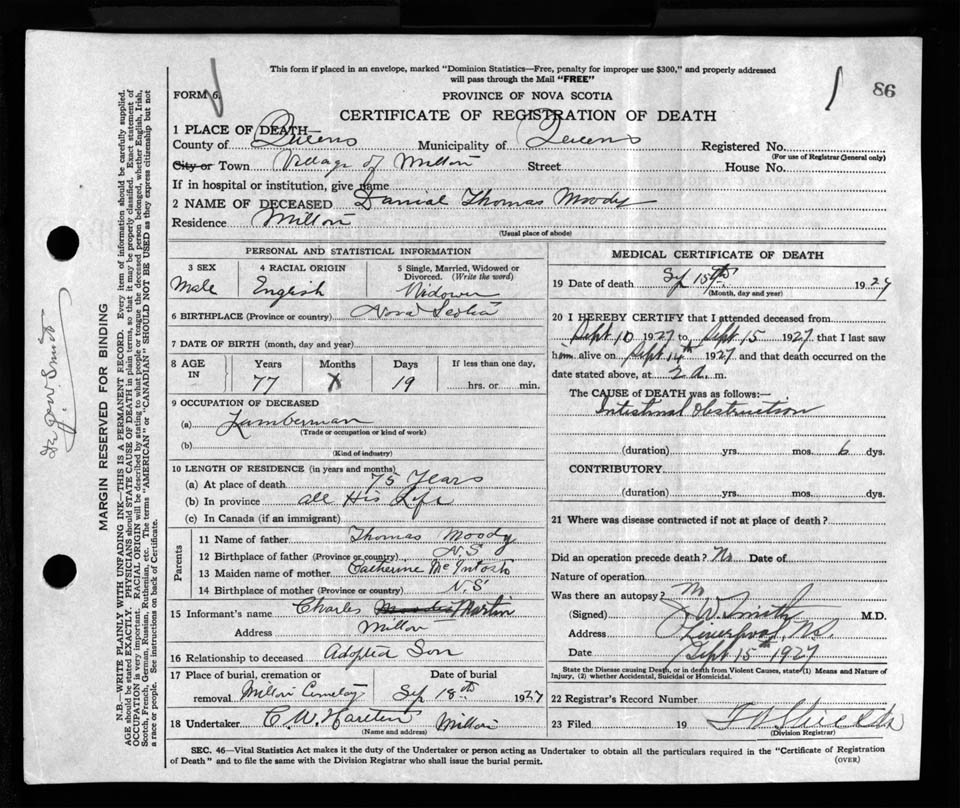 This form if placed in an envelope, marked "Dominion Statistics—Free, penalty for improper use $300," and properly addressed
will pass through the Mail "FREE"
FORM 6.
PROVINCE OF NOVA SCOTIA
86
CERTIFICATE OF REGISTRATION OF DEATH
1 PLACE OF DEATH—
County of Queens Municipality of Queens Registered No.
(For use of Registrar General only)
City or Town Village of Milton Street House No.
If in hospital or institution, give name
2 NAME OF DECEASED Danial Thomas Moody
Residence Milton
(Usual place of abode)
PERSONAL AND STATISTICAL INFORMATION
3 SEX 4 RACIAL ORIGIN 5 Single, Married, Widowed or
Divorced. (Write the word)
Male English Widower
6 BIRTHPLACE (Province or country) Nova Scotia
7 DATE OF BIRTH (month, day and year)
8 AGE IN Years Months Days If less than one day,
77 X 19 hrs. or min.
9 OCCUPATION OF DECEASED
(a) Lumberman
(Trade or occupation or kind of work)
(b)
(Kind of industry)
10 LENGTH OF RESIDENCE (in years and months)
(a) At place of death 75 Years
(b) In province all His Life
(c) In Canada (if an immigrant)
Parents
11 Name of father Thomas Moody
12 Birthplace of father (Province or country) N.S
13 Maiden name of mother Catherine McIntosh
14 Birthplace of mother (Province or country) N.S
15 Informant's name Charles Martin
Address Milton
16 Relationship to deceased Adopted Son
17 Place of burial, cremation or Date of burial
removal Milton Cemetery Sep 18th 1927
18 Undertaker C. W. Milton
(Name and address)
MEDICAL CERTIFICATE OF DEATH
19 Date of death Sep 15th 1927
(Month, day and year)
20 I HEREBY CERTIFY that I attended deceased from
Sept 10 1927 to Sept 15 1927 that I last saw
him alive on Sept 14th 1927 and that death occurred on the
date stated above, at 2 a. m.
The CAUSE of DEATH was as follows:
Intestinal obstruction
(duration) yrs. mos. 6 dys.
CONTRIBUTORY
(duration) yrs. mos. dys.
21 Where was disease contracted if not at place of death?
Did an operation precede death? No Date of
Nature of operation
Was there an autopsy? No
(Signed) J. W. Smith M.D.
Address Liverpool, N.S.
Date Sept 15th 1927
State the Disease causing Death, or in death from Violent Causes, state (1) Means and Nature of
Injury, (2) whether Accidental, Suicidal or Homicidal.
22 Registrar's Record Number
23 Filed 19
(Division Registrar)
SEC. 46—Vital Statistics Act makes it the duty of the Undertaker or person acting as Undertaker to obtain all the particulars required in the "Certificate of Registration
of Death" and to file the same with the Division Registrar who shall issue the burial permit.
(OVER)
MARGIN RESERVED FOR BINDING
N.B.—WRITE PLAINLY WITH UNFADING INK—THIS IS A PERMANENT RECORD. Every item of information should be carefully supplied.
AGE should be stated EXACTLY. PHYSICIANS should STATE CAUSE OF DEATH in plain terms, so that it may be properly classified. Exact statement of
OCCUPATION is very important. RACIAL ORIGIN will be described by stating to what people or tongue the deceased person belonged, whether English, Irish,
Scotch, French, German, Russian, Ruthenian, etc. The terms "AMERICAN" or "CANADIAN" SHOULD NOT BE USED as they express citizenship but not
a race or people. See instructions on back of Certificate.